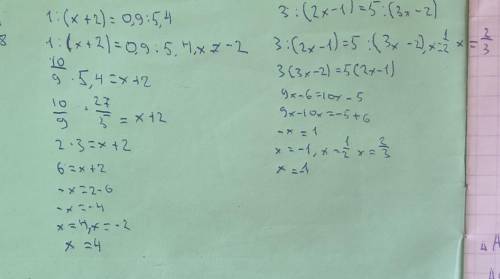 1:(x+2)=0,9:5,4
8
1:(x+2)=0,9:5,4, x≠-2
10/9 · 5,4=x+2
10/9 · 27/5 = x+2
2·3=x+2
6=x+2
-x=2-6
-x=-4
x=4, x≠-2
x=4
3:(2x-1)=5:(3x-2)
3:(2x-1)=5:(3x-2), x≠1/2 x≠2/3
3(3x-2)=5(2x-1)
9x-6=10x-5
9x-10x=-5+6
-x=1
x=-1, x≠1/2 x≠2/3
x=-1